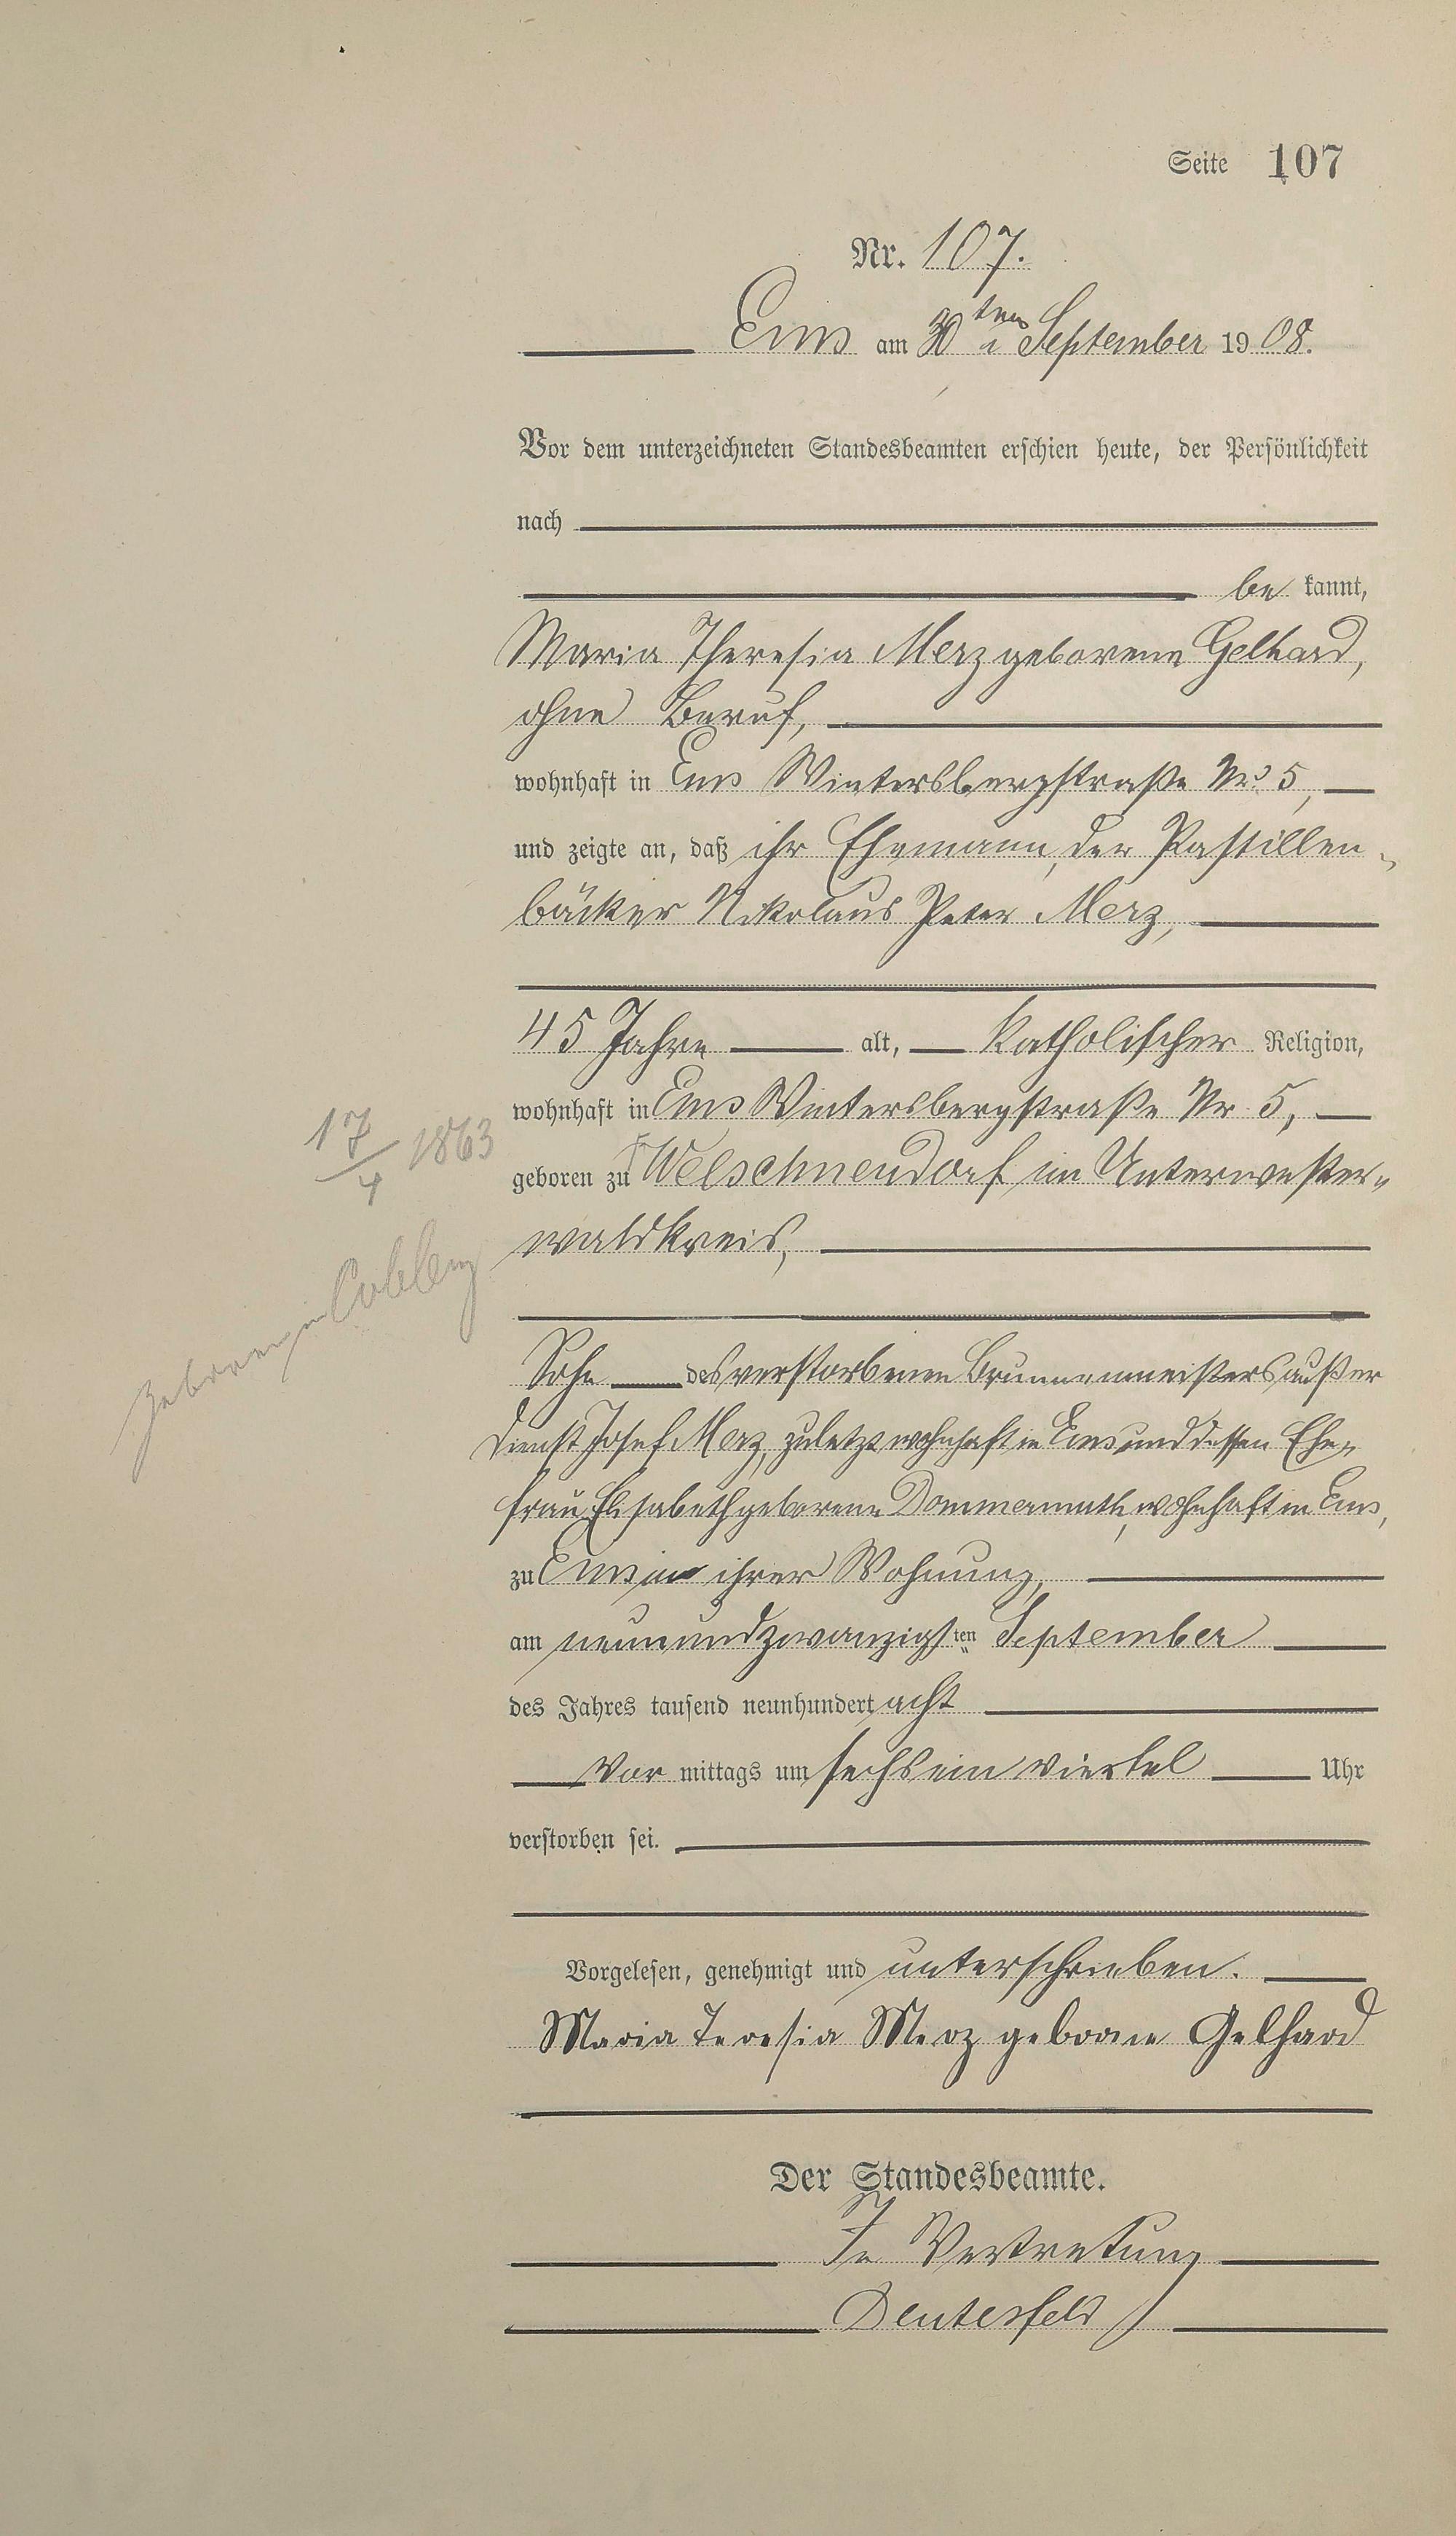 Seite 107
Nr. 107.
Ems am 30ten September 1908.
Vor dem unterzeichneten Standesbeamten erschien heute, der Persönlichkeit
nach
be kannt,
Maria Theresia Merz geborene Gelhard,
ohne Beruf,
wohnhaft in Ems Wintersbergstraße No. 5,
und zeigte an, daß ihr Ehemann, der Pastillen-
bäcker Nikolaus Peter Merz,
45 Jahre alt, katholischer Religion,
wohnhaft in Ems Wintersbergstraße Nr 5,
17/4 1863
geboren zu Welschneudorf im Unterwester-
waldkreis,
geboren in Coblenz
Sohn des verstorbenen Brunnenmeisters außer
Dienst Josef Merz, zuletzt wohnhaft in Ems und dessen Ehe-
frau Elisabeth geborene Dommermuth, wohnhaft in Ems,
zu Ems in ihrer Wohnung,
am neunundzwanzigsten September
des Jahres tausend neunhundert acht
Vor mittags um sechs ein viertel Uhr
verstorben sei.
Vorgelesen, genehmigt und unterschrieben.
Maria Teresia Merz geborne Gelhard
Der Standesbeamte.
In Vertretung
Deutesfeld